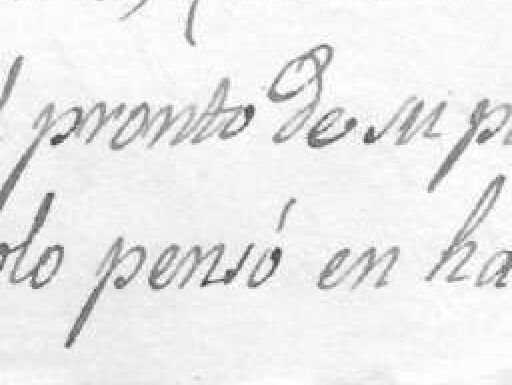 pronto de su p
olo pensó en ha